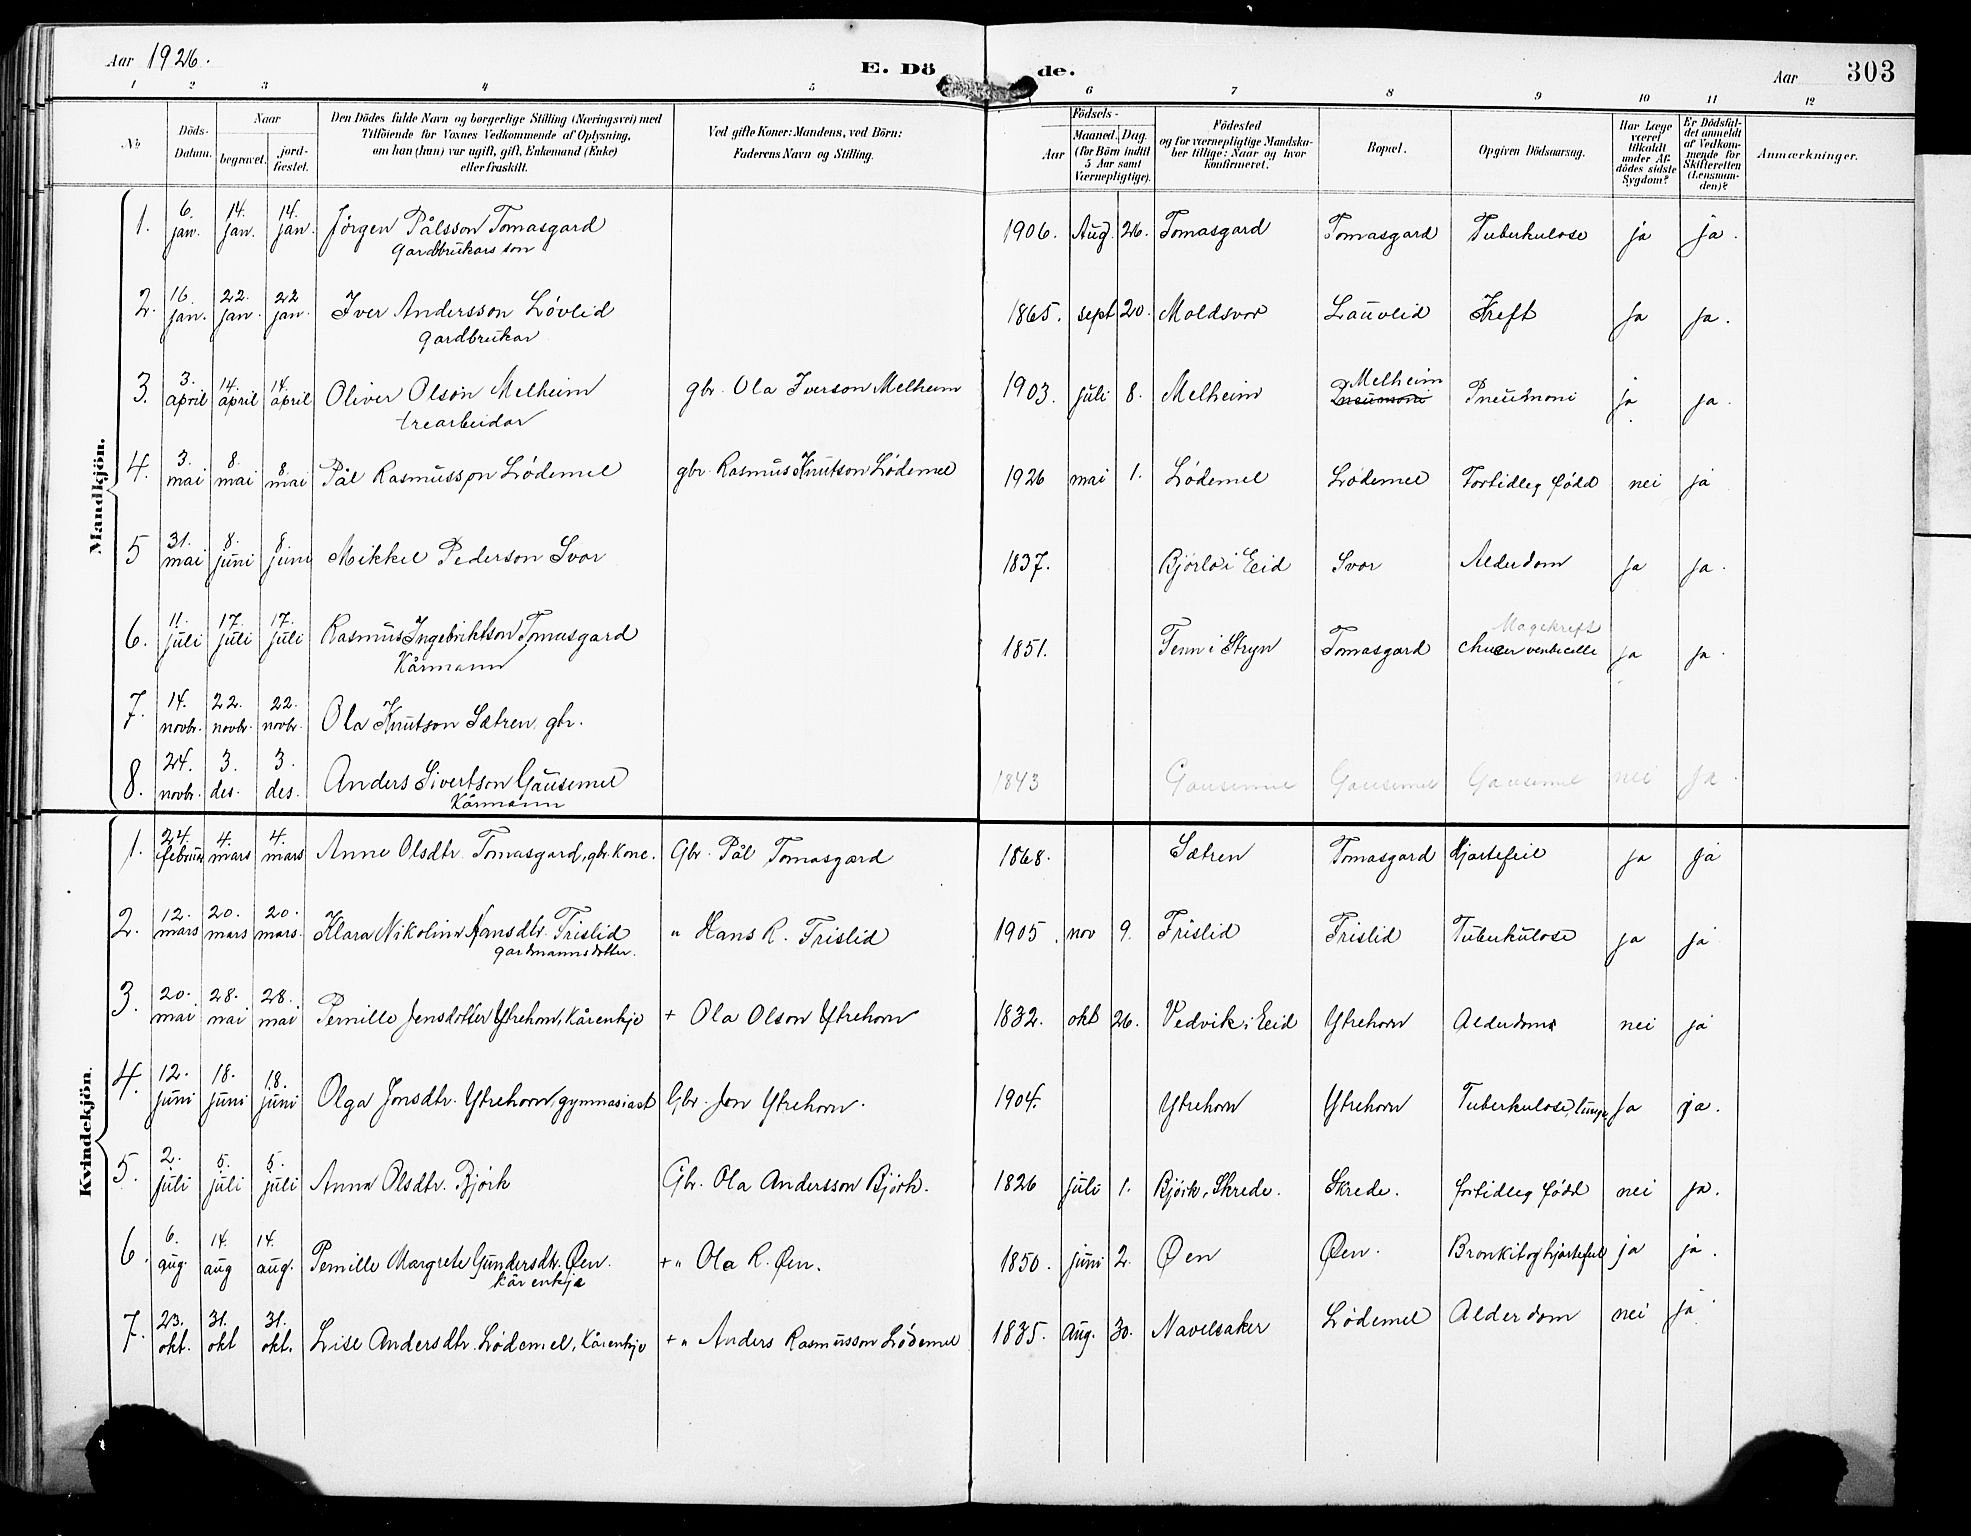 Aar 1926.
E. Dö de.
Aar 303
1 2 3 4 5 6 7 8 9 10 11 12
No
Döds-Datum.
Naar
begravet.
jord-fæstet.
Den Dödes fulde Navn og borgerlige Stilling (Næringsvei) med
Tilföiende for Voxnes Vedkommende af Oplysning,
om han (hun) var ugift, gift, Enkemand (Enke)
eller fraskilt.
Ved gifte Koner: Mandens, ved Börn:
Faderens Navn og Stilling.
Födsels-
Aar
Maaned. Dag.
(for Börn indtil
5 Aar samt
Værnepligtige).
Födested
og for værnepligtige Mandska-
ber tillige: Naar og hvor
konfirmeret.
Bopæl.
Opgiven Dödsaarsag.
Har Læge
været
tilkaldt
under Af-
dödes sidste
Sygdom?
Er Dödsfal-
det anmeldt
af Vedkom-
mende for
Skifteretten
(Lensman-
den)?
Anmærkninger.
Mandkjön.
1. 6. jan. 14. jan. 14. jan. Jørgen Pålsson Tomasgard 1906. Aug. 26. Tomasgard Tomasgard Tuberkulose ja ja.
gardbrukars son
2. 16. jan. 22. jan. 22 jan. Iver Andersson Løvlid 1865. sept 20. Moldsvor Lauvlid Kreft ja ja.
gardbrukar
3. 3. april 14. april 14. april Oliver Olson Melheim gbr. Ola Iverson Melheim 1903. juli 8. Melheim Melheim Pneumoni Pneumoni ja ja.
trearbeidar
4. 3. mai 8. mai 8. mai Pål Rasmusson Lødemel gbr. Rasmus Knutson Lødemel 1926 mai 1. Lødemel Lødemel Fortidleg fødd nei ja
5 31. mai 8. juni 8. juni Mikkel Pederson Svor 1837. Bjørlo i Eid Svor Alderdom ja ja.
6. 11. juli 17. juli 17. juli Rasmus Ingebriktson Tomasgard 1851. Tenn i Stryn Tomasgard Magekreft ventricelle ja ja.
Kårmann
7. 14. novbr. 22. novbr. 22. novbr. Ola Knutson Sætren, gbr.
8. 24. novbr. 3. des. 3. des. Anders Sivertson Gausemel 1843 Gausemel Gausemel Gausemel nei ja.
Kårmann
Kvindekjön.
1. 24. februar 4. mars 4. mars Anne Olsdtr. Tomasgard, gbr. kone. Gbr. Pål Tomasgard 1868. Sætren Tomasgard Hjartefeil ja ja
2. 12. mars 20. mars 20. mars. Klara Nikoline Hansdtr. Frislid " Hans R. Frislid 1905. nov 9. Frislid Frislid Tuberkulose ja ja
gardmannsdotter.
3. 20. mai 28. mai 28. mai Pernille Jensdotter Ytrehorn, Kårenkje + Ola Olson Ytrehorn 1832. okt 26. Vedvik i Eid Ytrehorn Alderdom nei ja
4. 12. juni 18. juni 18. juni Olga Jonsdtr. Ytrehorn, gymnasiast Gbr. Jon Ytrehorn. 1904. Ytrehorn Ytrehorn Tuberkulose, lunge ja ja.
5. 2. juli 5. juli 5. juli Anna Olsdtr. Bjørk Gbr. Ola Andersson Bjørk. 1826 juli 1. Bjørk, Skrede. Skrede. fortidleg fødd nei ja.
6. 6. aug. 14. aug 14. aug. Pernille Margrete Gundersdtr. Øen. + " Ola R. Øen. 1850. juni 2. Øen Øen. Bronkit og hjartefeil ja ja.
kårenkje
7. 23. okt. 31. okt 31. okt. Lise Andersdtr. Lødemel, Kårenkje + " Anders Rasmusson Lødemel 1835. Aug. 30. Navelsaker Lødemel Alderdom nei ja